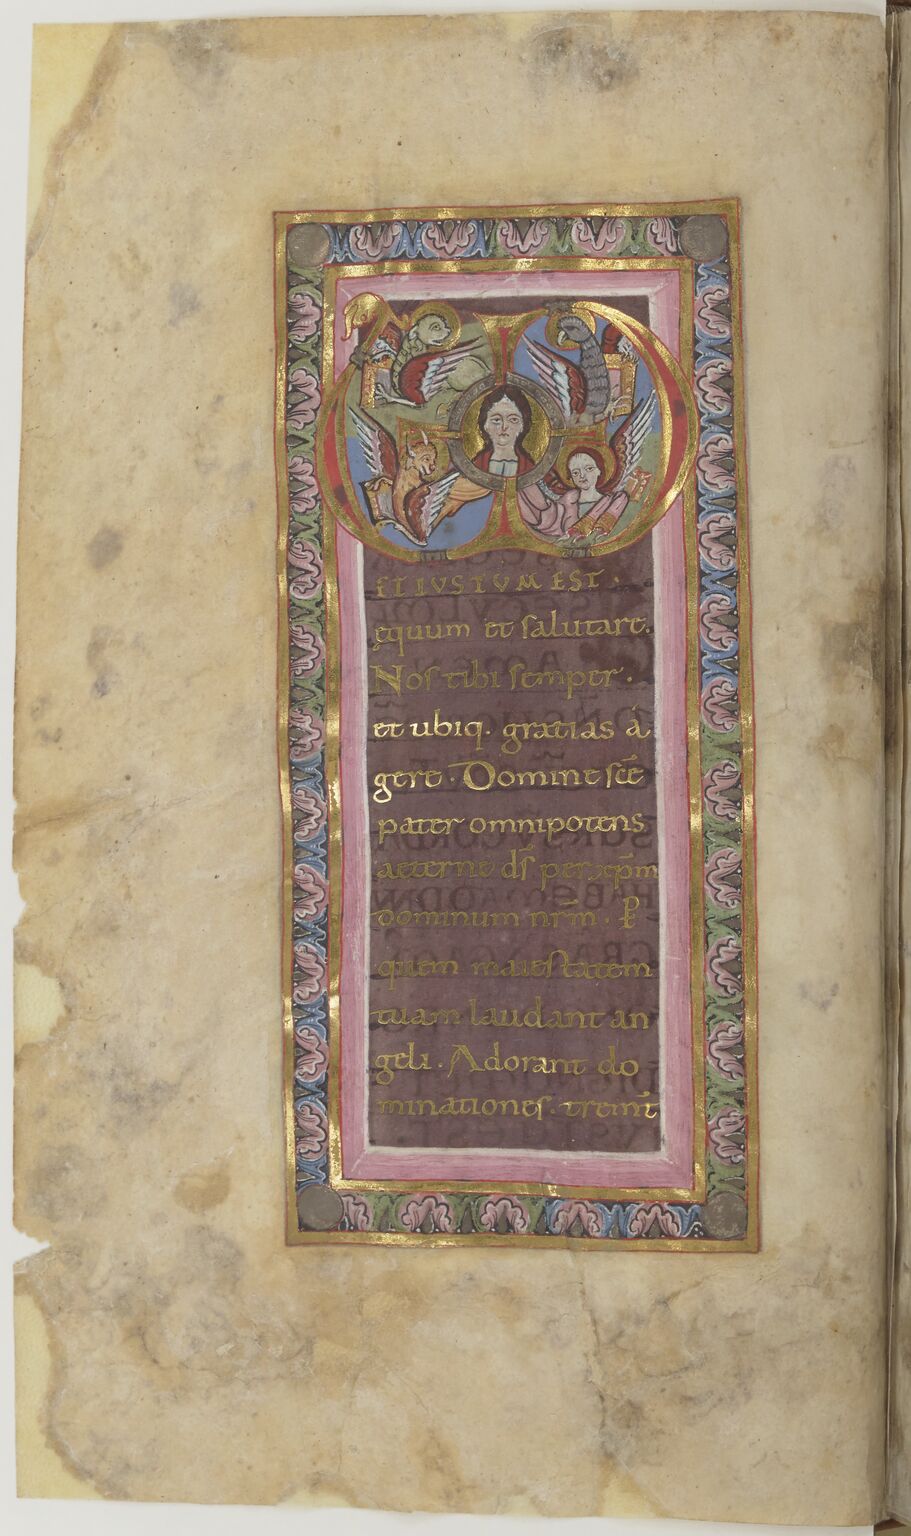 ET IUSTUM EST.
ęquum et salutare.
Nos tibi semper.
et ubiq. gratias á
gere. Domine sc̄e
pater omnipotens
aeterne ds̄ per xp̄m
dominum nr̄m. P̄
quem maiestatem
tuam laudant an
geli. Adorant do
minationes. tremt̄